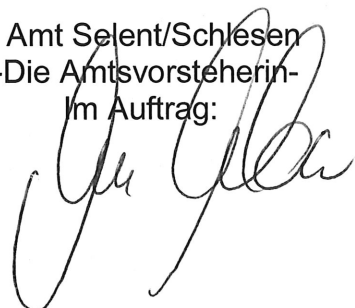 Amt Selent/Schlesen
-Die Amtsvorsteherin-
Im Auftrag: